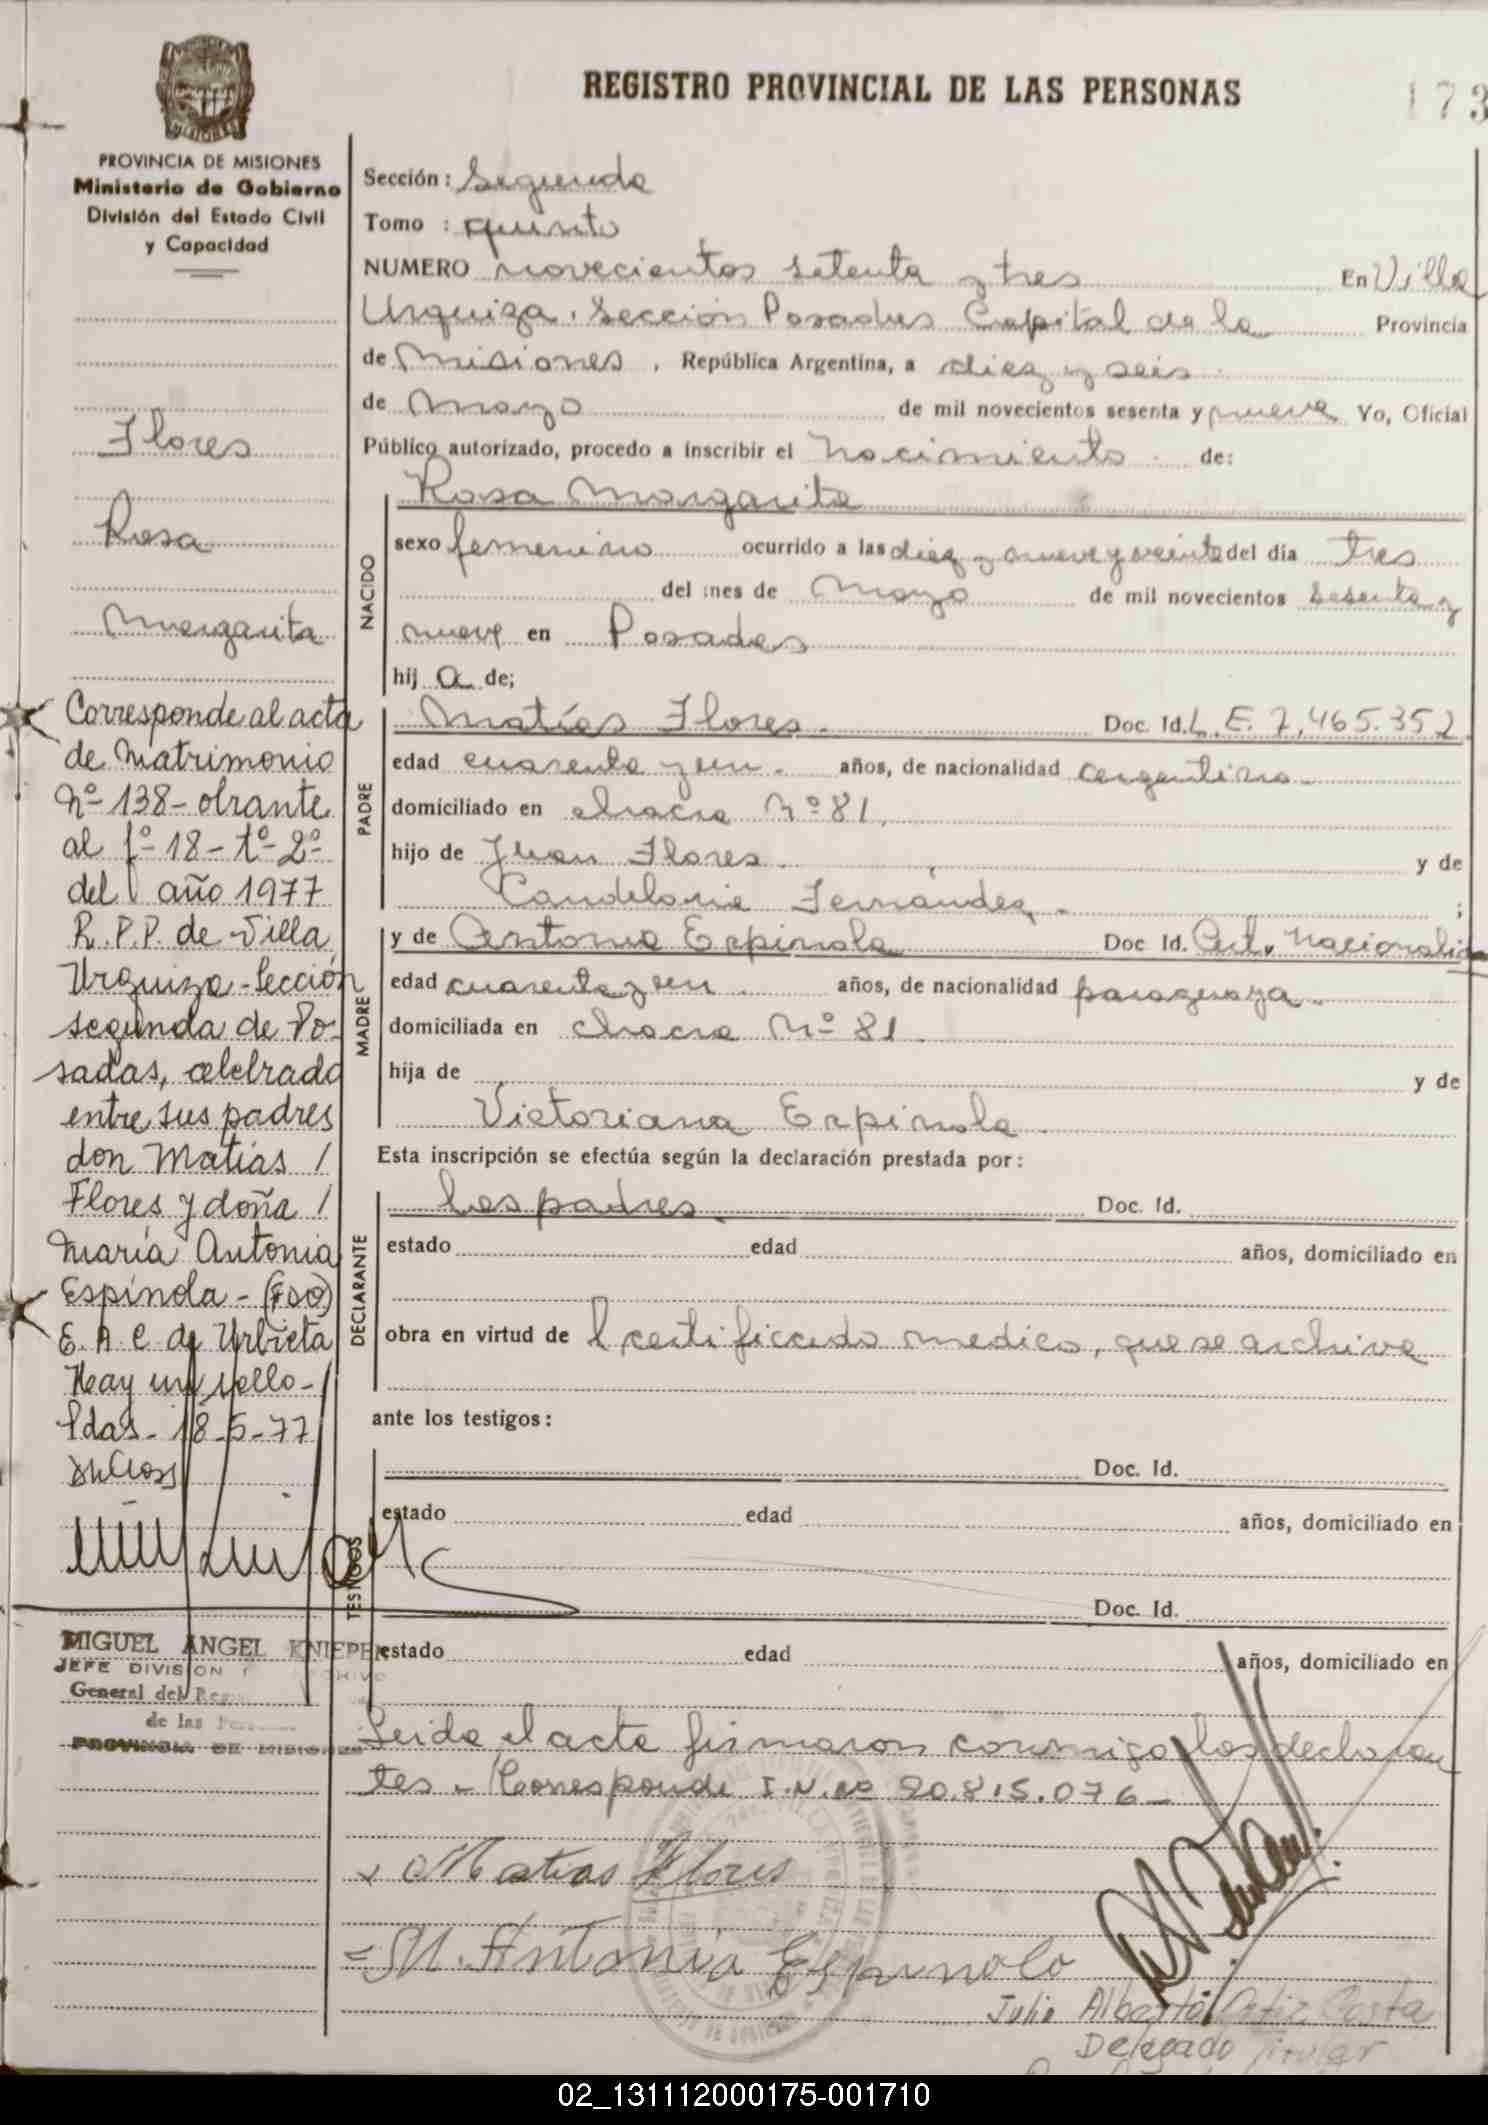 REGISTRO PROVINCIAL DE LAS PERSONAS
173
PROVINCIA DE MISIONES
Ministerio de Gobierno
División del Estado Civil
y Capacidad
Flores
Rosa
Margarita
Corresponde al acta
de Matrimonio
Nº 138 - obrante
al fº 18 - tº 2º
del año 1977
R.P.P. de Villa
Urquiza - Sección
segunda de Po-
sadas, celebrado
entre sus padres
don Matías /
Flores y doña /
María Antonia
Espínola - (Fdo)
E. A. C de Urbieta
Hay un sello -
Pdas - 18-5-77
MIGUEL ANGEL KNIEPER
JEFE DIVISION ARCHIVO
General del Reg.
de las
PROVINCIA DE MISIONES
Sección: Segunda
Tomo : quinto
NUMERO novecientos setenta y tres En Villa
Urquiza. Sección Posadas Capital de la Provincia
de Misiones, República Argentina, a diez y seis
de Mayo de mil novecientos sesenta y nueve Yo, Oficial
Público autorizado, procedo a inscribir el Nacimiento de:
NACIDO
Rosa Margarita
sexo femenino ocurrido a las diez y nueve y veinte del día tres
del mes de Mayo de mil novecientos sesenta y
nueve en Posadas
hij a de;
PADRE
Matías Flores. Doc. Id. L.E. 7.465.352
edad cuarenta y un. años, de nacionalidad argentino.
domiciliado en chacra Nº 81.
hijo de Juan Flores y de
Candelaria Fernández. ;
MADRE
y de Antonia Espinola Doc Id. Cert. Nacionalid
edad cuarenta y un años, de nacionalidad paraguaya.
domiciliada en chacra Nº 81
hija de y de
Victoriana Espinola.
Esta inscripción se efectúa según la declaración prestada por:
DECLARANTE
Los padres. Doc. Id.
estado edad años, domiciliado en
obra en virtud de l certificado medico, que se archiva
ante los testigos:
TESTIGOS
Doc. Id.
estado edad años, domiciliado en
Doc. Id.
estado edad años, domiciliado en
Leida el acta firmaron conmigo los declaran
tes - Corresponde I.N. nº 20.815.076 -
x Matias Flores
= M. Antonia Espinola
Julio Alberto Ortiz Costa
Delegado Titular
02_131112000175-001710